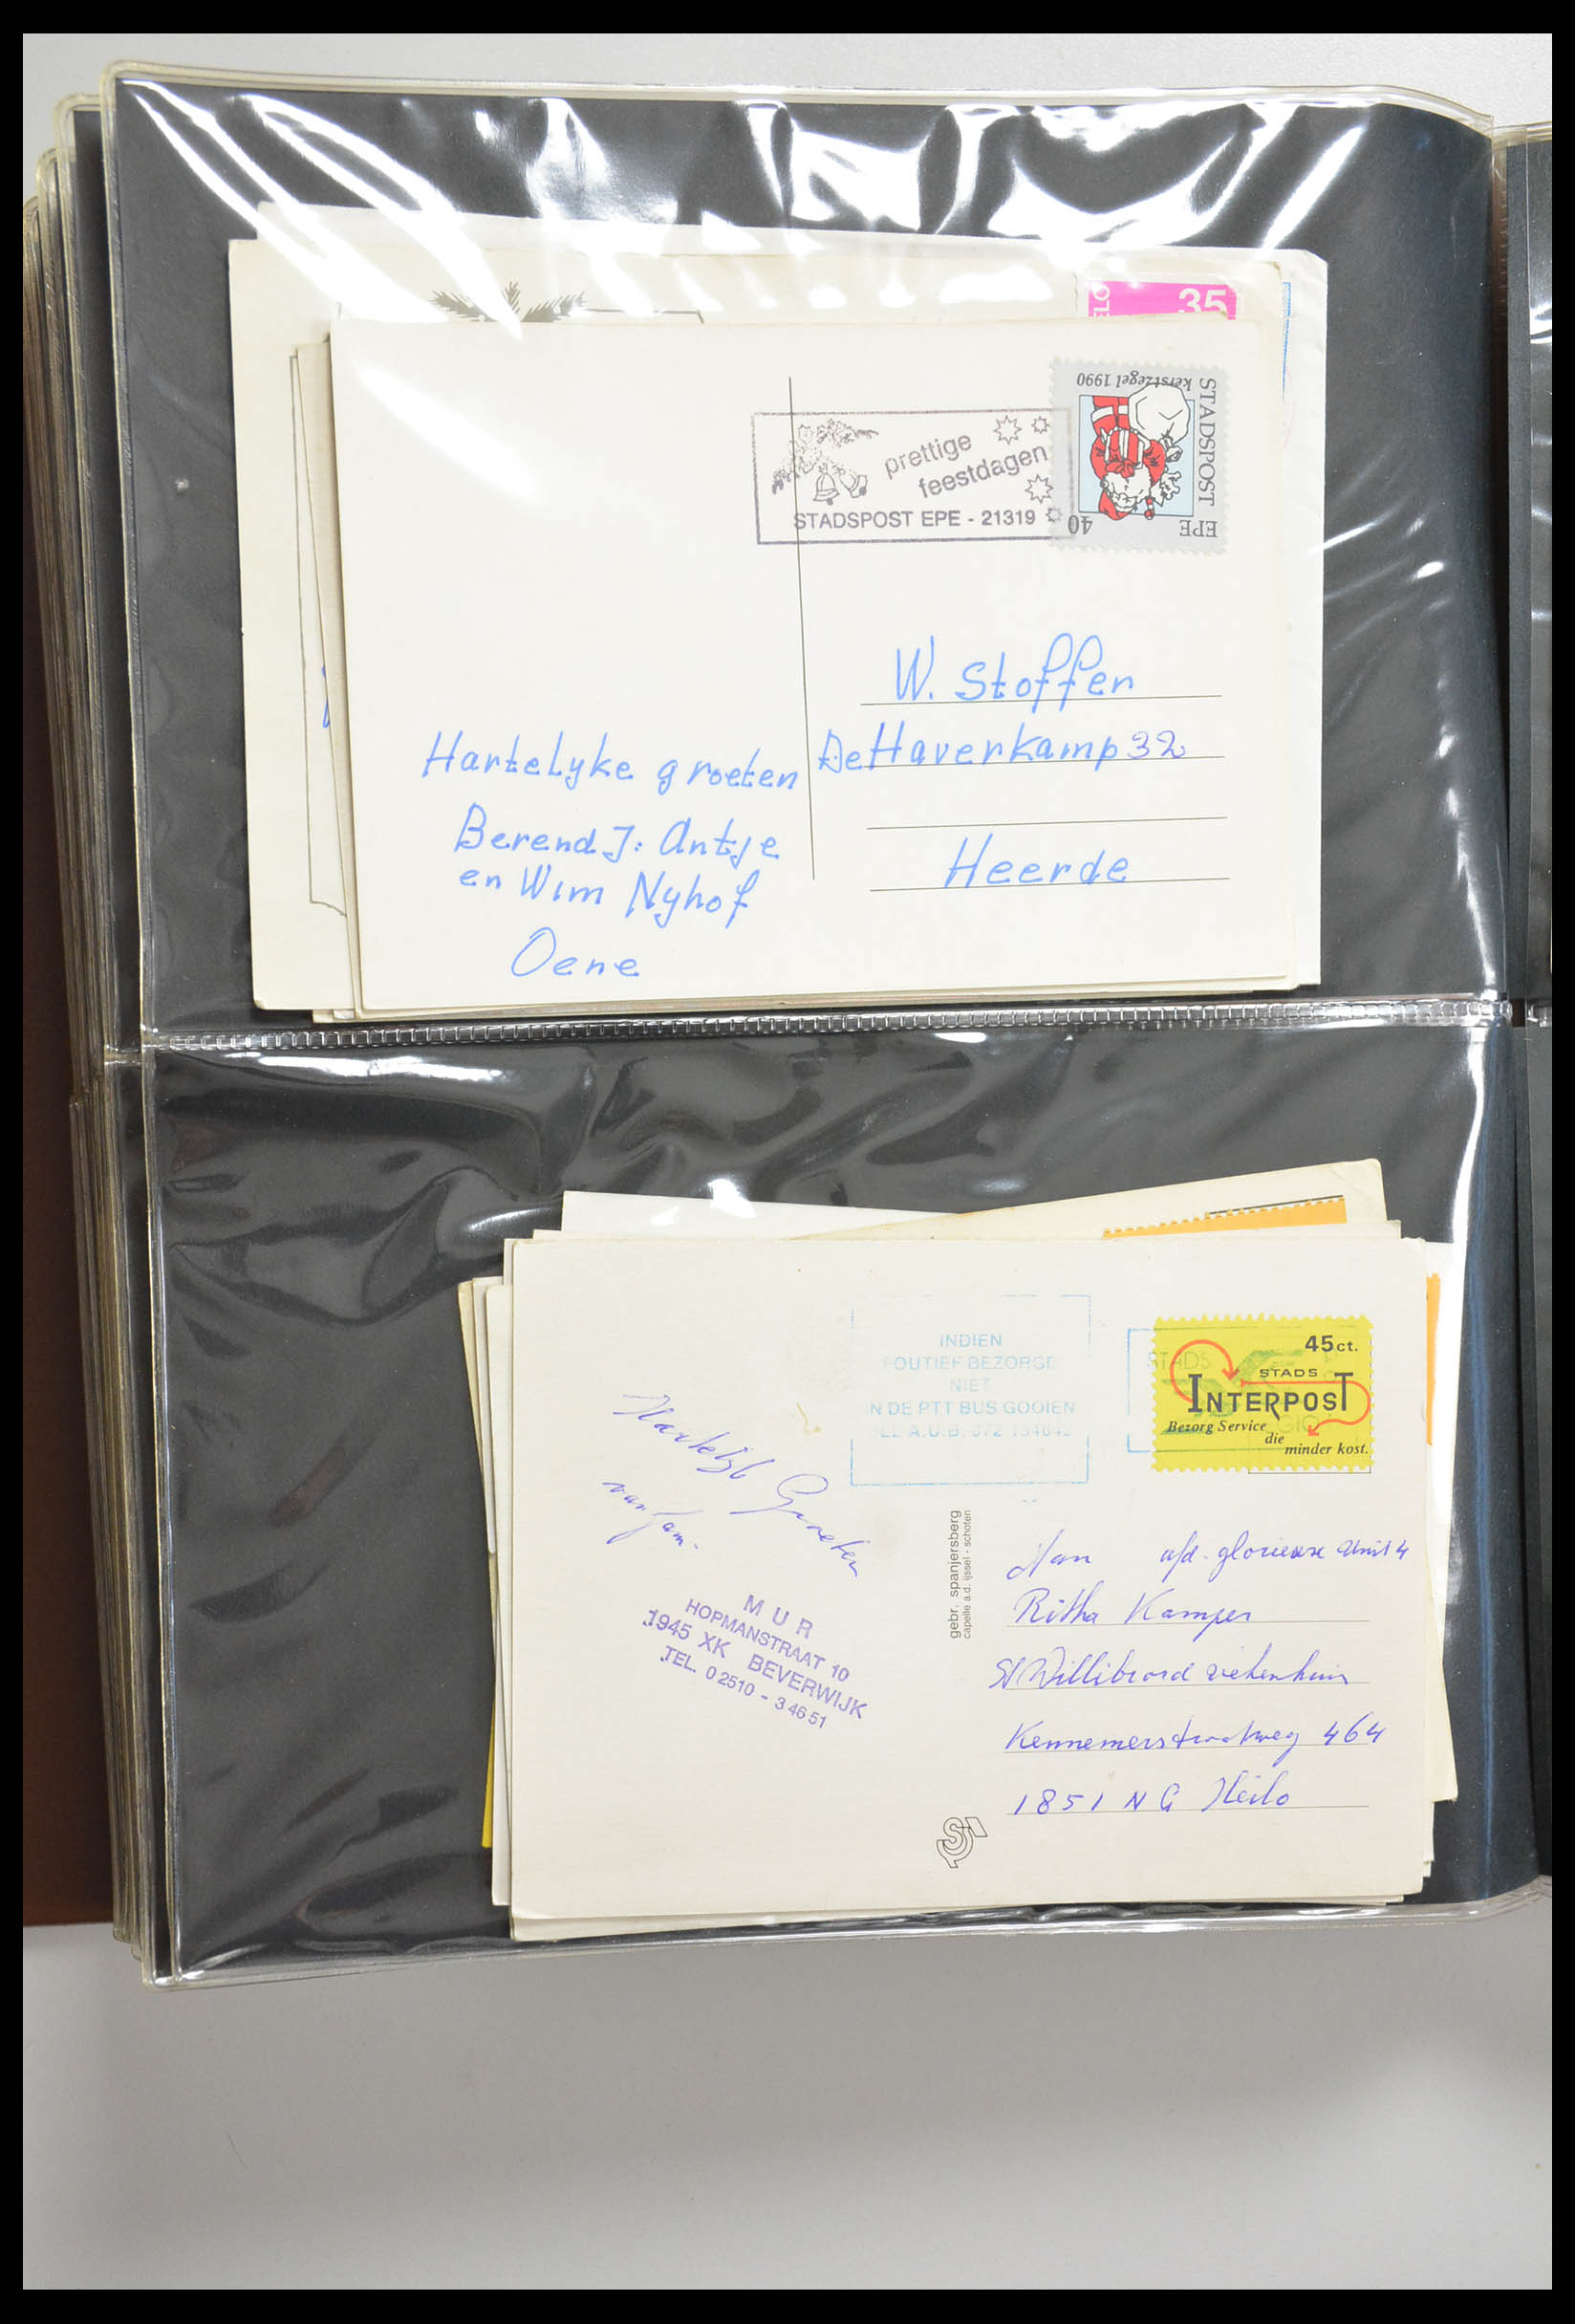 35
kerstzegel 1990
STADSPOST EPE
40
prettige
feestdagen
STADSPOST EPE - 21319
W. Stoffen
De Haverkamp 32
Heerde
Hartelyke groeten
Berend J. Antje
en Wim Nyhof
Oene
INDIEN
FOUTIEF BEZORGD
NIET
IN DE PTT BUS GOOIEN
A.U.B. 072
45ct.
STADS
INTERPOST
Bezorg Service
die
minder kost.
Hartelijk Groeten
van fam.
MUR
HOPMANSTRAAT 10
1945 XK BEVERWIJK
TEL. 02510 - 34651
gebr. spanjersberg
capelle a.d. ijssel - schoten
Aan afd. glorieuse Unit 4
Ritha Kamper
St Willibrord ziekenhuis
Kennemerstraatweg 464
1851 NG Heilo